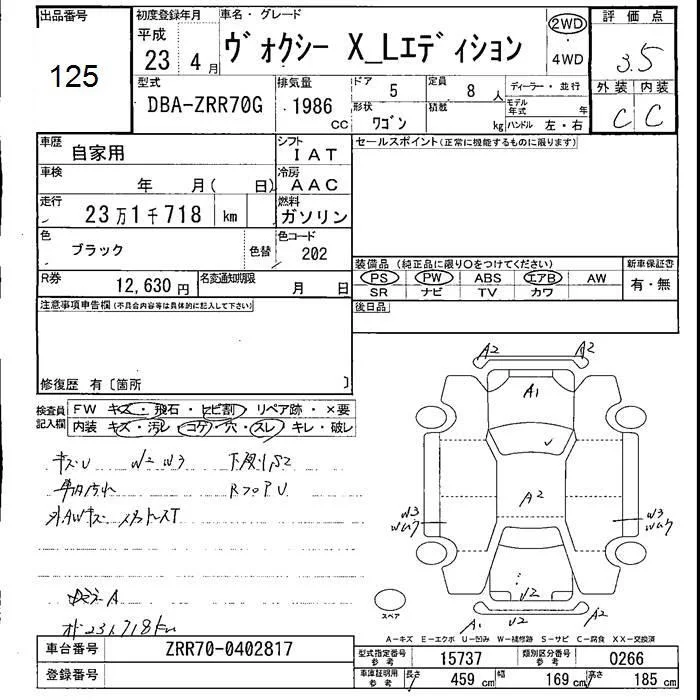 出品番号
125
初度登録年月
平成
23 4 月
車名・グレード
ヴォクシー X_Lエディション
2WD
・
4WD
評価点
3.5
外装 内装
C C
型式
DBA-ZRR70G
排気量
1986
CC
ドア
5
定員
8 人
ディーラー・並行
形状
ワゴン
積載
kg
モデル年式 年
ハンドル 左・右
車歴
自家用
シフト
IAT
セールスポイント(正常に機能するものに限ります)
車検
年 月( 日)
冷房
AAC
走行
23万1千718 km
燃料
ガソリン
色
ブラック
色替
色コード
202
R券
12,630 円
名変通知期限
月 日
装備品(純正品に限り○をつけてください)
新車保証書
PS PW ABS エアB AW
有・無
SR ナビ TV カワ
注意事項申告欄(不具合内容等は具体的に記入して下さい)
後日品
修復歴 有〔箇所 〕
検査員
記入欄
FW キズ・飛石・ヒビ割・リペア跡・×要
内装 キズ・汚レ・コゲ・穴・スレ・キレ・破レ
キズU W2 W3 下廻りS2
車内汚れ RフロアU
外AWキズ
A
231,718km
A2 A2
A1
A2
W3
W3
U2
A1 U2 A2
スペア
A-キズ E-エクボ U-凹み W-補修跡 S-サビ C-腐食 XX-交換済
車台番号
ZRR70-0402817
登録番号
型式指定番号
参考
15737
類別区分番号
参考
0266
車庫証明用
参考
長さ
459 cm
幅
169 cm
高さ
185 cm